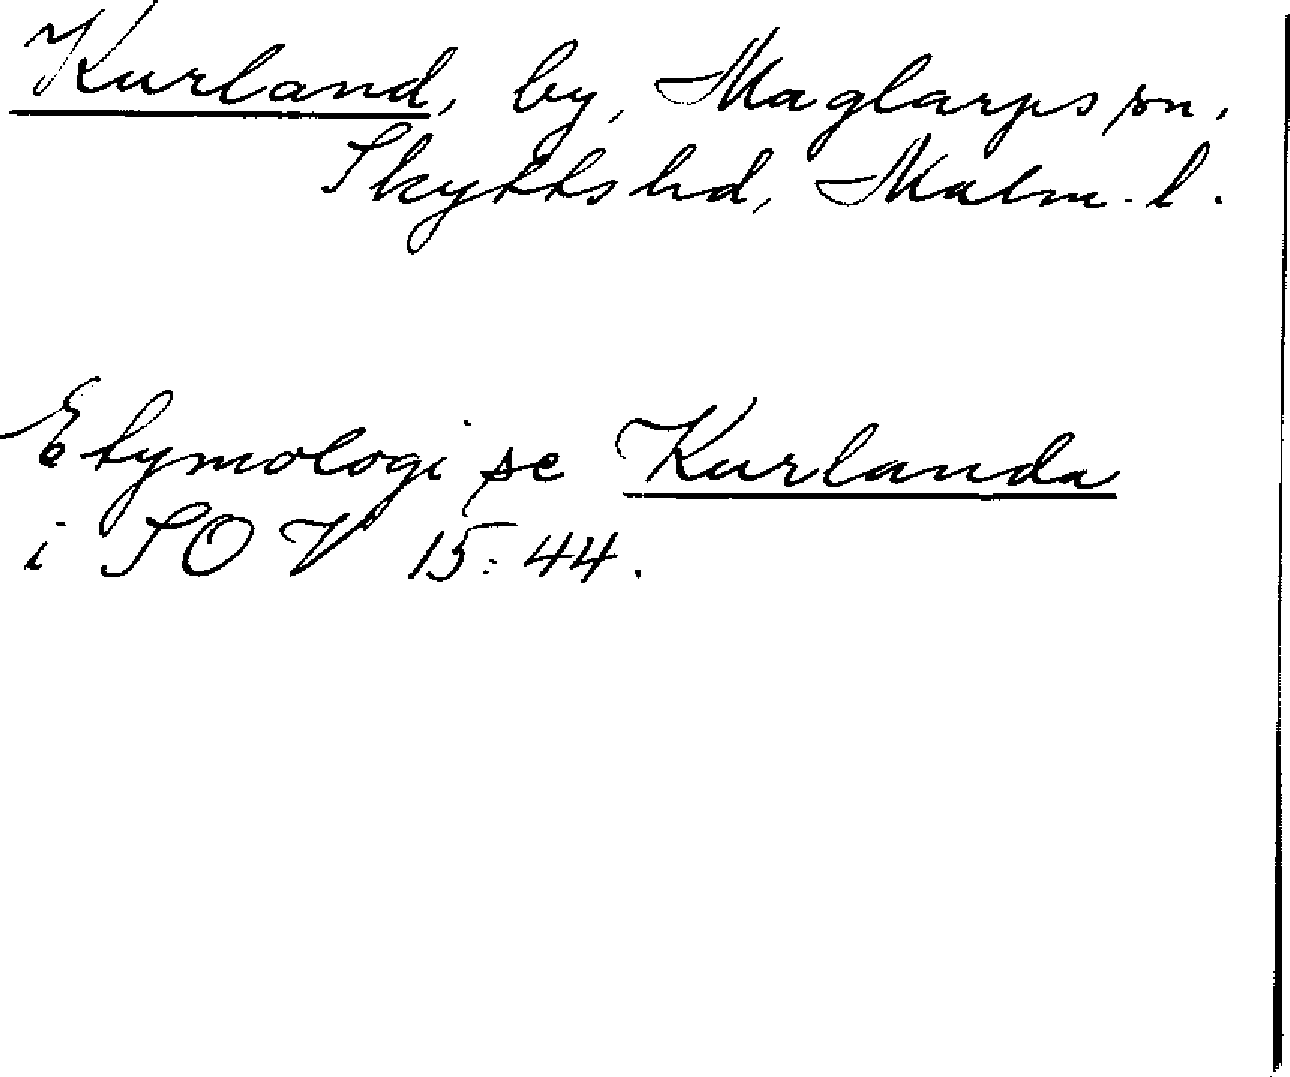 Kurland, by, Maglarps sn,
Skytts hd, Malm. l.
Etymologi se Kurlanda
i SOV 15:44.